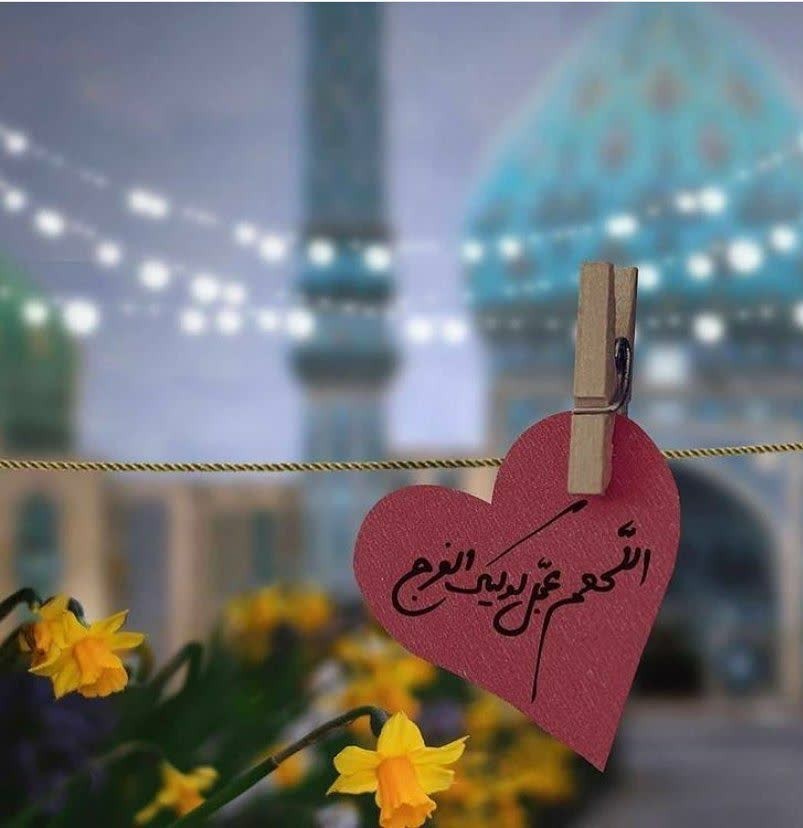 اللّهم عجّل لولیک الفرج